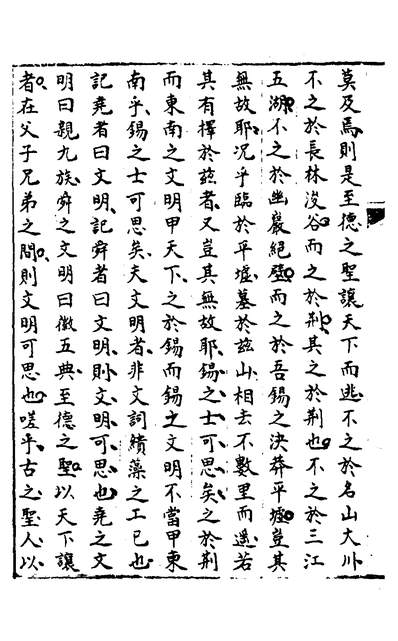 莫及焉則是至德之聖讓天下而逃不之於名山大川
不之於長林浚谷而之於荆其之於荆也不之於三江
五湖不之於幽巖絕壁而之於吾錫之泱莽平墟豈其
無故耶况乎臨於平墟墓於茲山相去不數里而遥若
其有擇於茲者又豈其無故耶錫之士可思矣之於荆
而東南之文明甲天下之於錫而錫之文明不當甲東
南乎錫之士可思矣夫文明者非文詞繢藻之工已也
記堯者曰文明記舜者曰文明則文明可思也堯之文
明曰親九族舜之文明曰徽五典至德之聖以天下讓
者在父子兄弟之間則文明可思也嗟乎古之聖人以